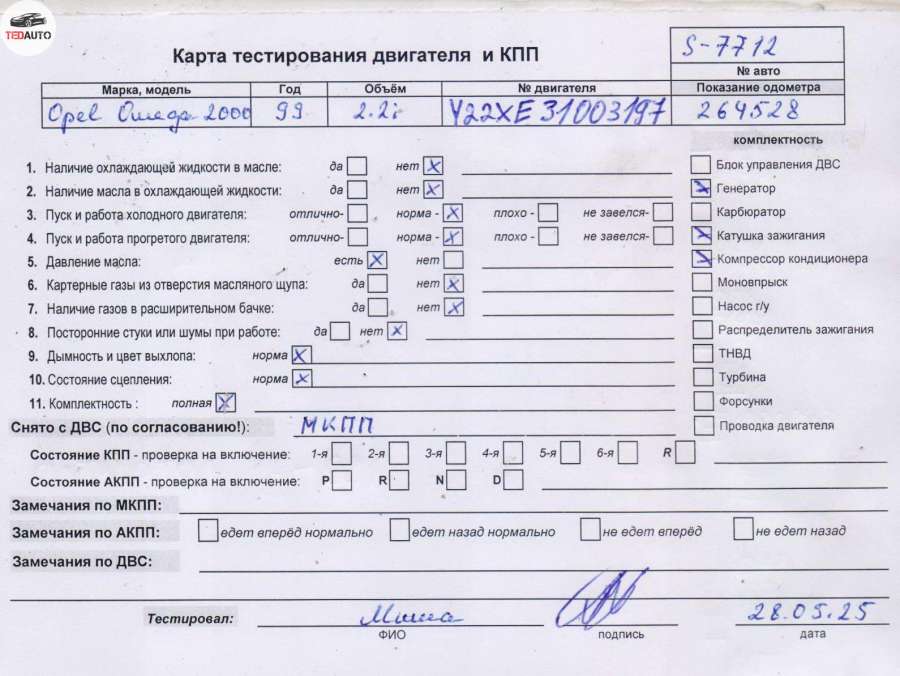 TEDAUTO
Карта тестирования двигателя и КПП
S-7712
№ авто
Марка, модель Год Объём № двигателя Показание одометра
Opel Omega 2000 99 2.2i Y22XE 31003197 264528
комплектность
1. Наличие охлаждающей жидкости в масле: да нет X
Блок управления ДВС
2. Наличие масла в охлаждающей жидкости: да нет X
Генератор X
3. Пуск и работа холодного двигателя: отлично- норма - X плохо - не завелся-
Карбюратор
4. Пуск и работа прогретого двигателя: отлично- норма - X плохо - не завелся-
Катушка зажигания X
5. Давление масла: есть X нет
Компрессор кондиционера X
6. Картерные газы из отверстия масляного щупа: да нет X
Моновпрыск
7. Наличие газов в расширительном бачке: да нет X
Насос г/у
8. Посторонние стуки или шумы при работе: да нет X
Распределитель зажигания
9. Дымность и цвет выхлопа: норма X
ТНВД
10. Состояние сцепления: норма X
Турбина
11. Комплектность : полная X
Форсунки
Снято с ДВС (по согласованию!): МКПП
Проводка двигателя
Состояние КПП - проверка на включение: 1-я 2-я 3-я 4-я 5-я 6-я R
Состояние АКПП - проверка на включение: P R N D
Замечания по МКПП:
Замечания по АКПП: едет вперёд нормально едет назад нормально не едет вперёд не едет назад
Замечания по ДВС:
Тестировал: Миша 28.05.25
ФИО подпись дата